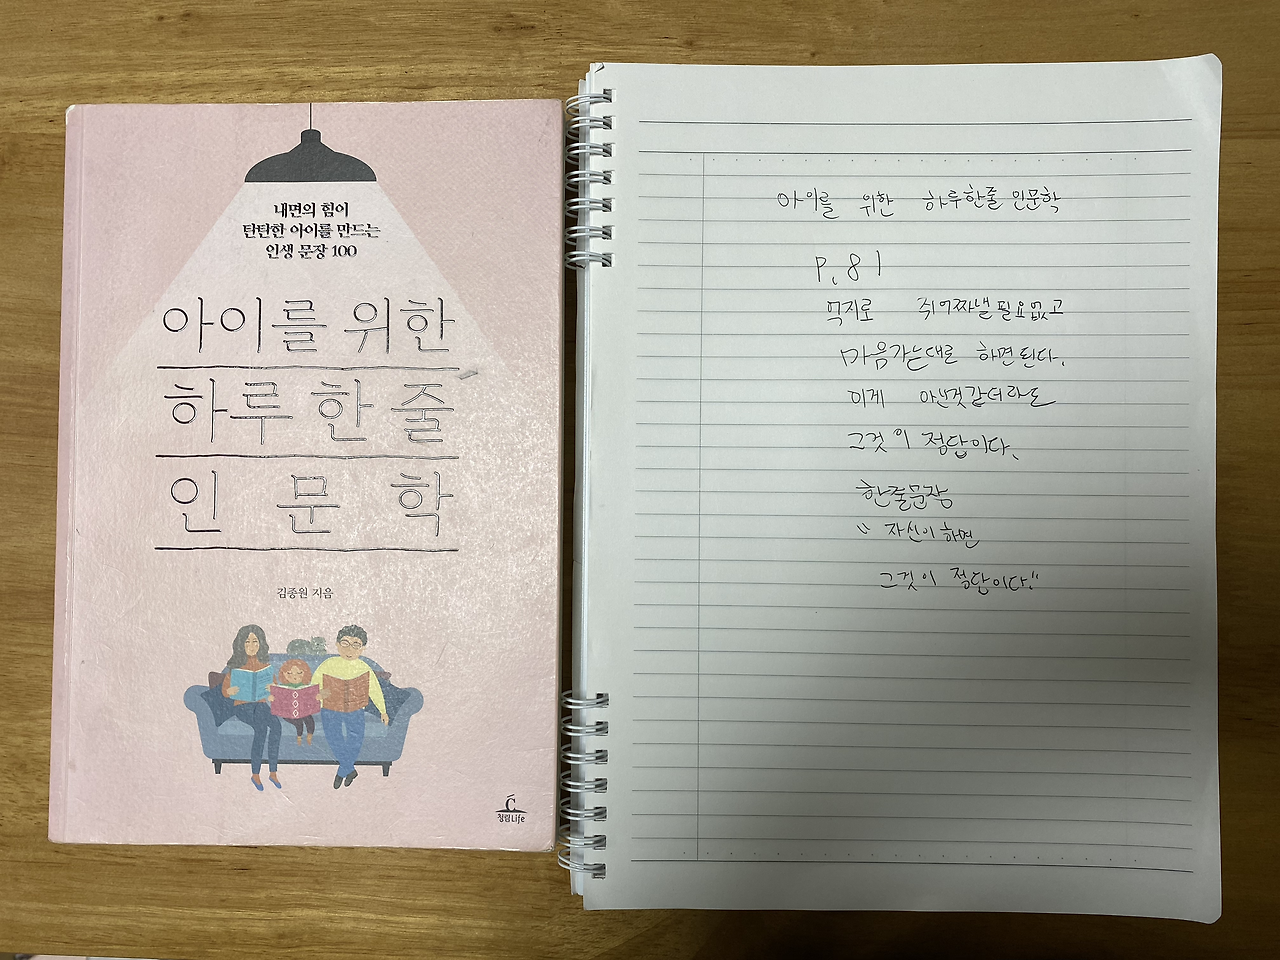 내면의 힘이
탄탄한 아이를 만드는
인생 문장 100
아이를 위한
하루 한 줄
인문학
김종원 지음
청림Life
아이를 위한 하루한줄 인문학
P. 81
억지로 쥐어짜낼필요없고
마음가는대로 하면된다.
이게 아닌것같더라도
그것이 정답이다.
한줄문장
"자신이하면
그것이 정답이다."